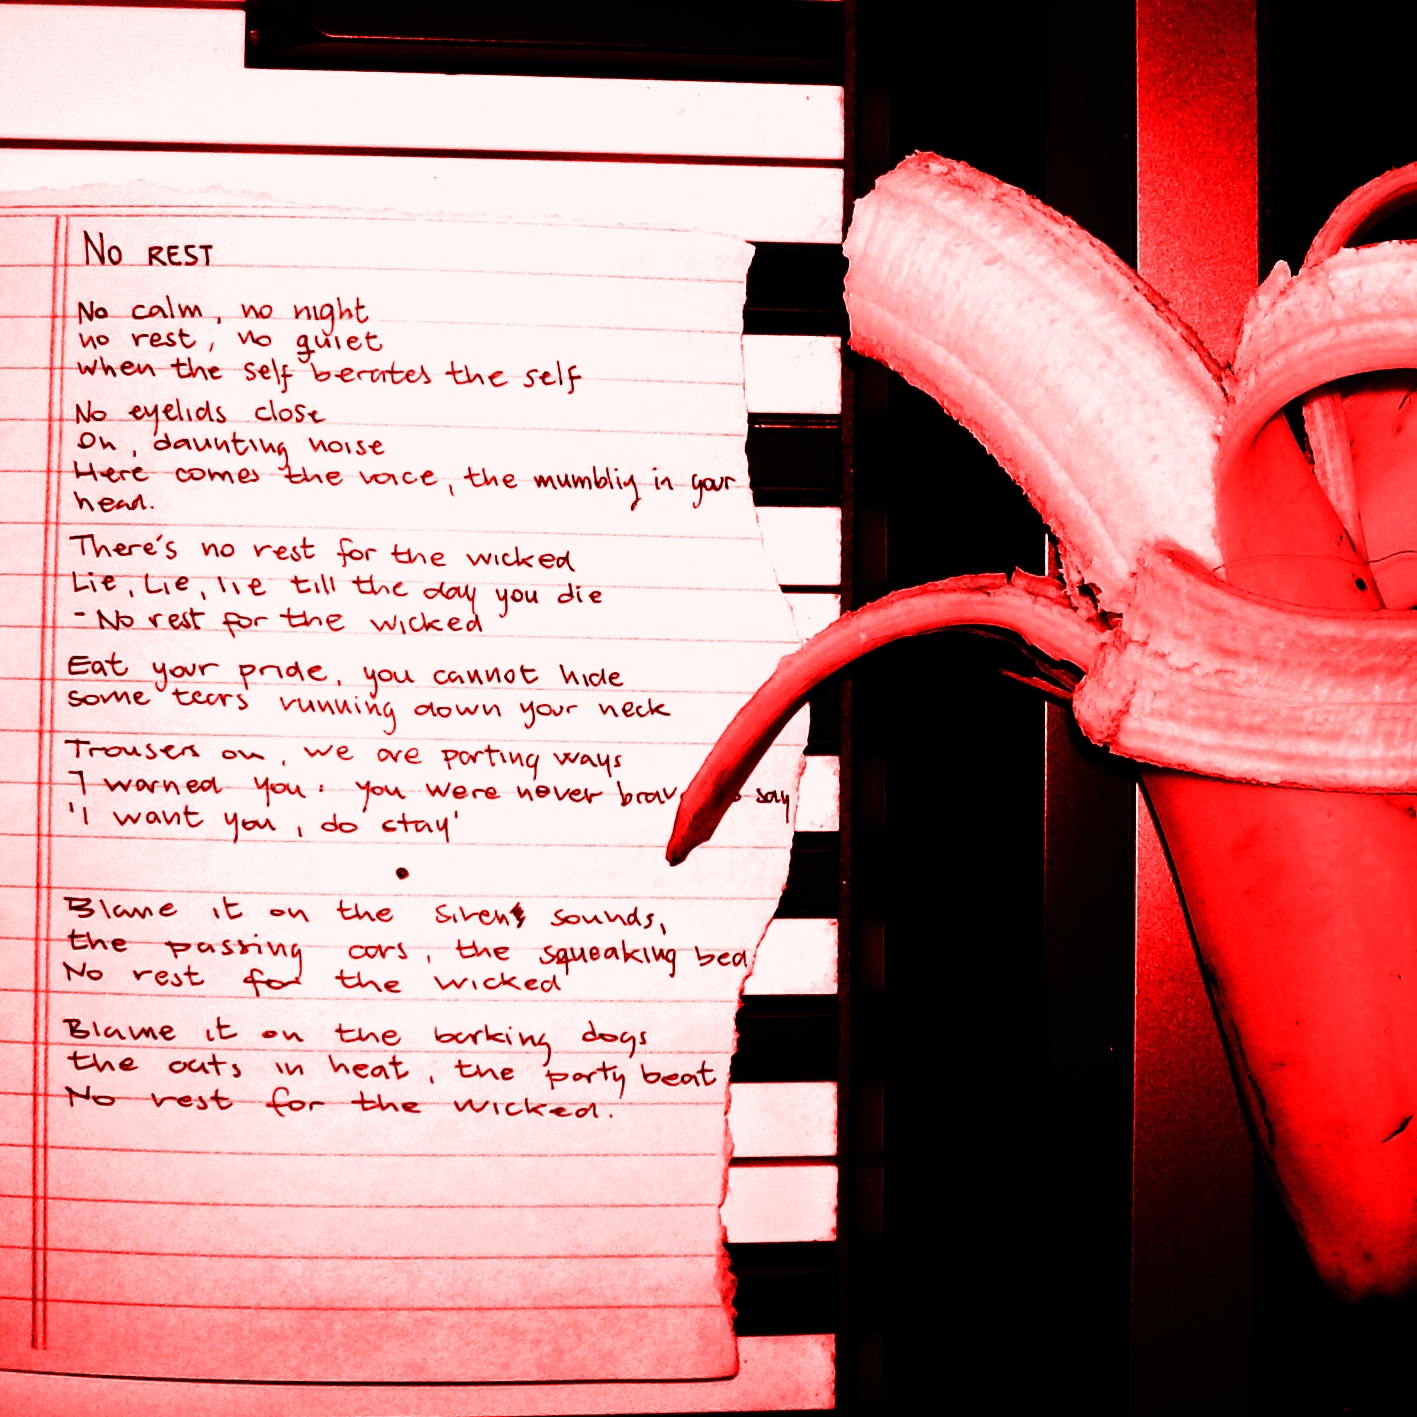 No REST
No calm, no night
no rest, no quiet
when the self berates the self
No eyelids close
On, daunting noise
Here comes the voice, the mumbling in your
head.
There's no rest for the wicked
Lie, Lie, lie till the day you die
- No rest for the wicked
Eat your pride, you cannot hide
some tears running down your neck
Trousers on, we are parting ways
I warned you: you were never say
'I want you, do stay'
Blame it on the sirens sounds,
the passing cars, the squeaking bed
No rest for the wicked
Blame it on the barking dogs
the cats in heat, the party beat
No rest for the wicked.